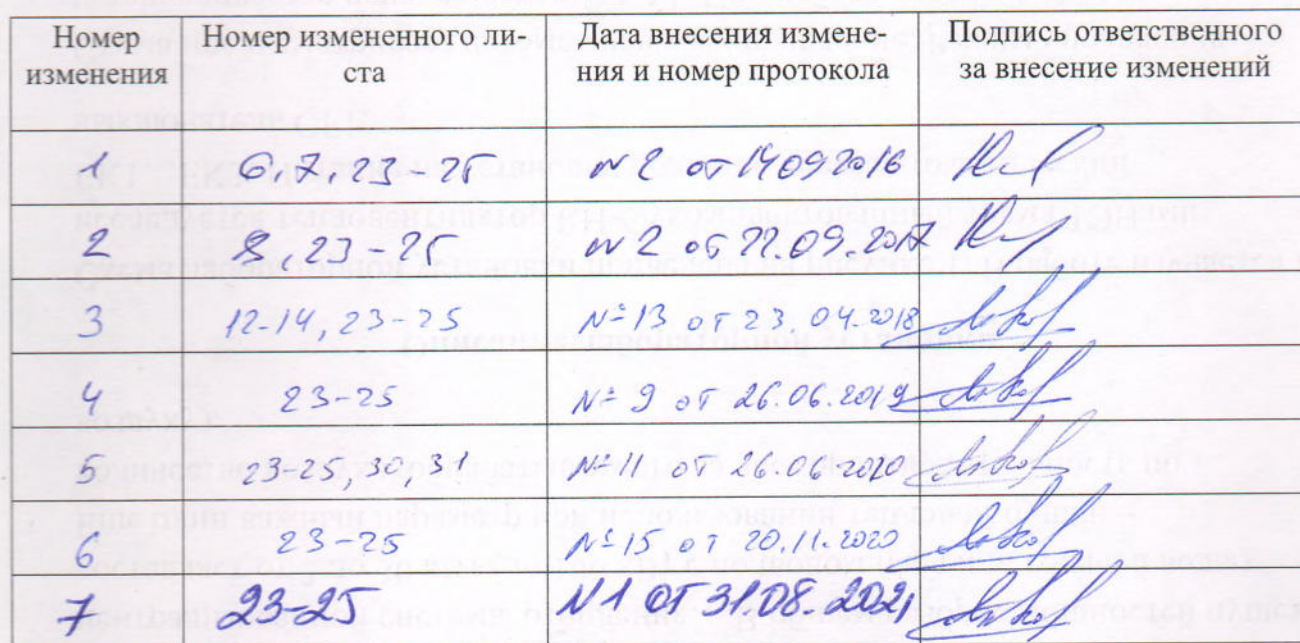 Номер изменения
Номер измененного ли-
ста
Дата внесения измене-
ния и номер протокола
Подпись ответственного
за внесение изменений
1 6,7, 23-25 N 2 от 14.09.2016
2 8, 23-25 N 2 от 22.09.2017
3 12-14, 23-25 № 13 от 23.04.2018
4 23-25 № 9 от 26.06.2019
5 23-25, 30, 31 № 11 от 26.06.2020
6 23-25 № 15 от 20.11.2020
7 23-25 N 1 от 31.08.2021